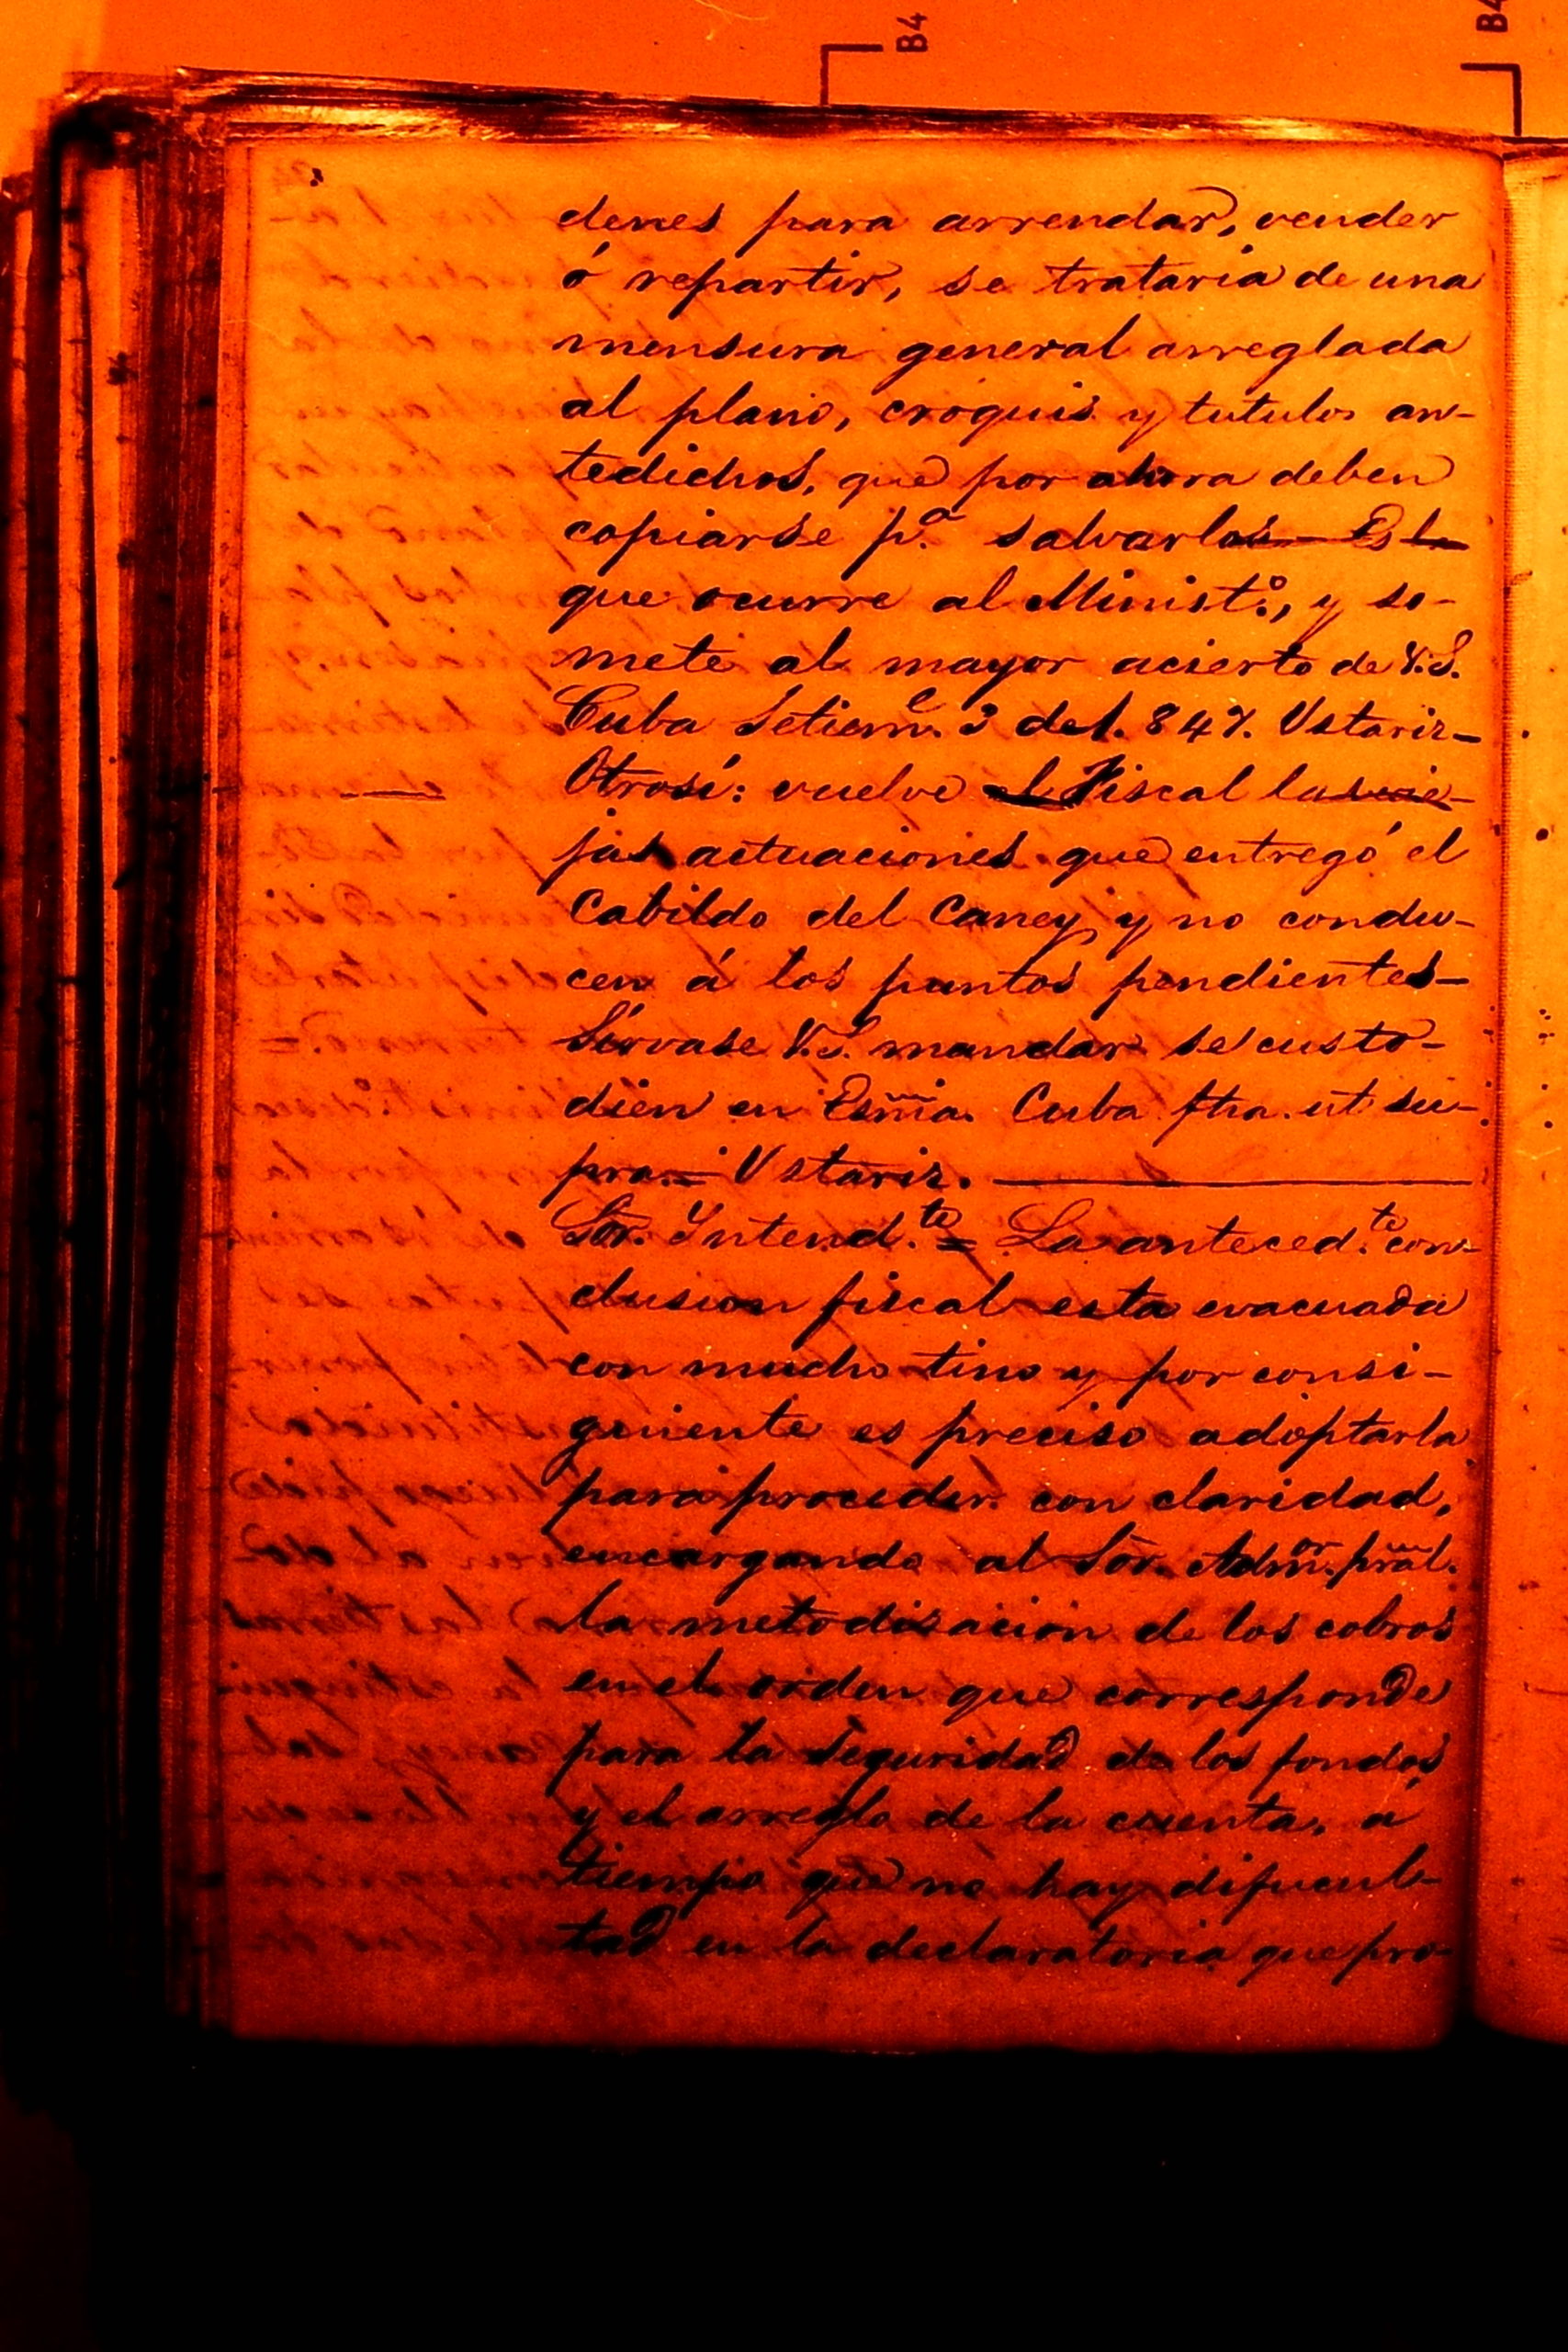 B4
B4
denes para arrendar, vender
ó repartir, se trataría de una
mensura general arreglada
al plano, cróquis y tutulos an-
tedichos, que por ahora deben
copiarse p.ª salvarlos - Es lo
que ocurre al Minist.º, y so-
mete al mayor acierto de V.S.
Cuba Setiem.e 3 de 1.847. Ustariz-
Otrosí: vuelve el Fiscal las vie-
jas actuaciones que entregó el
Cabildo del Caney y no condu-
cen á los puntos pendientes-
Sírvase V.S. mandar se custo-
dien en Esñia. Cuba fha. ut su-
pra.= Ustariz.
Sor. Yntend.te = La anteced.te con-
clusion fiscal esta evacuada
con mucho tino y por consi-
guiente es preciso adoptarla
para proceder con claridad,
encargando al Sor. Admor. pral.
la metodisacion de los cobros
en el orden que corresponde
para la seguridad de los fondos
y el arreglo de la cuenta, á
tiempo que no hay dificul-
tad en la declaratoria que pro-